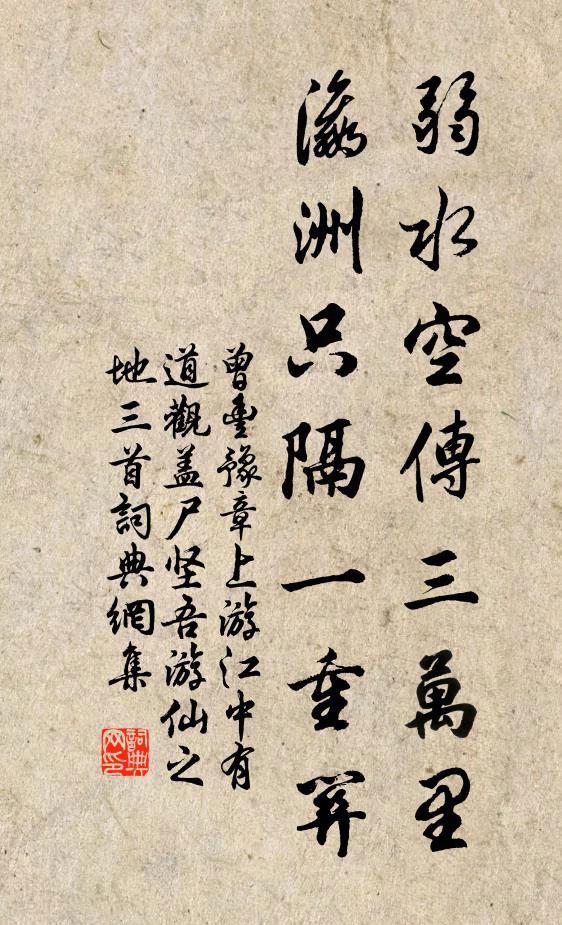 弱水空傳三萬里
瀛洲只隔一重關
曾豐豫章上游江中有
道觀盖尸坚吾游仙之
地三首詞典網集
詞典
网印